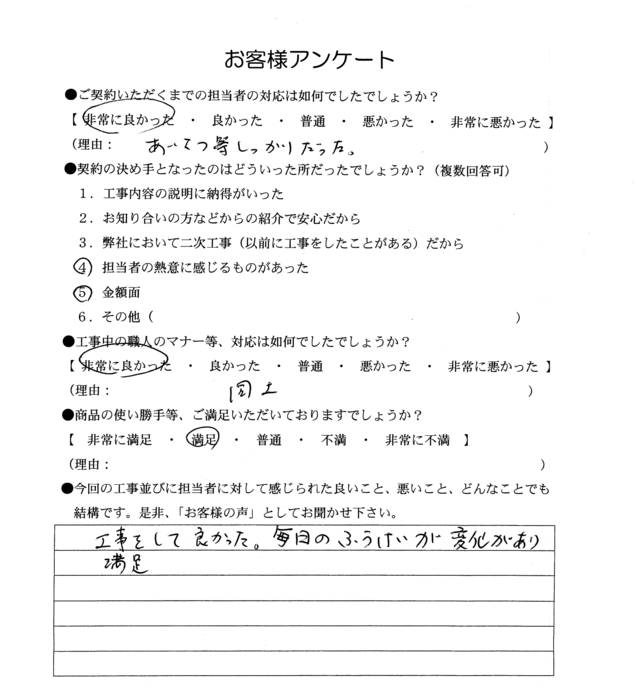 お客様アンケート
●ご契約いただくまでの担当者の対応は如何でしたでしょうか？
【 非常に良かった ・ 良かった ・ 普通 ・ 悪かった ・ 非常に悪かった 】
(理由： あいさつ等しっかりだった。 )
●契約の決め手となったのはどういった所だったでしょうか？（複数回答可）
１．工事内容の説明に納得がいった
２．お知り合いの方などからの紹介で安心だから
３．弊社において二次工事（以前に工事をしたことがある）だから
④ 担当者の熱意に感じるものがあった
⑤ 金額面
６．その他（ ）
●工事中の職人のマナー等、対応は如何でしたでしょうか？
【 非常に良かった ・ 良かった ・ 普通 ・ 悪かった ・ 非常に悪かった 】
(理由： 同上 )
●商品の使い勝手等、ご満足いただいておりますでしょうか？
【 非常に満足 ・ 満足 ・ 普通 ・ 不満 ・ 非常に不満 】
(理由： )
●今回の工事並びに担当者に対して感じられた良いこと、悪いこと、どんなことでも
結構です。是非、「お客様の声」としてお聞かせ下さい。
工事をして良かった。毎日のふうけいが変化があり
満足